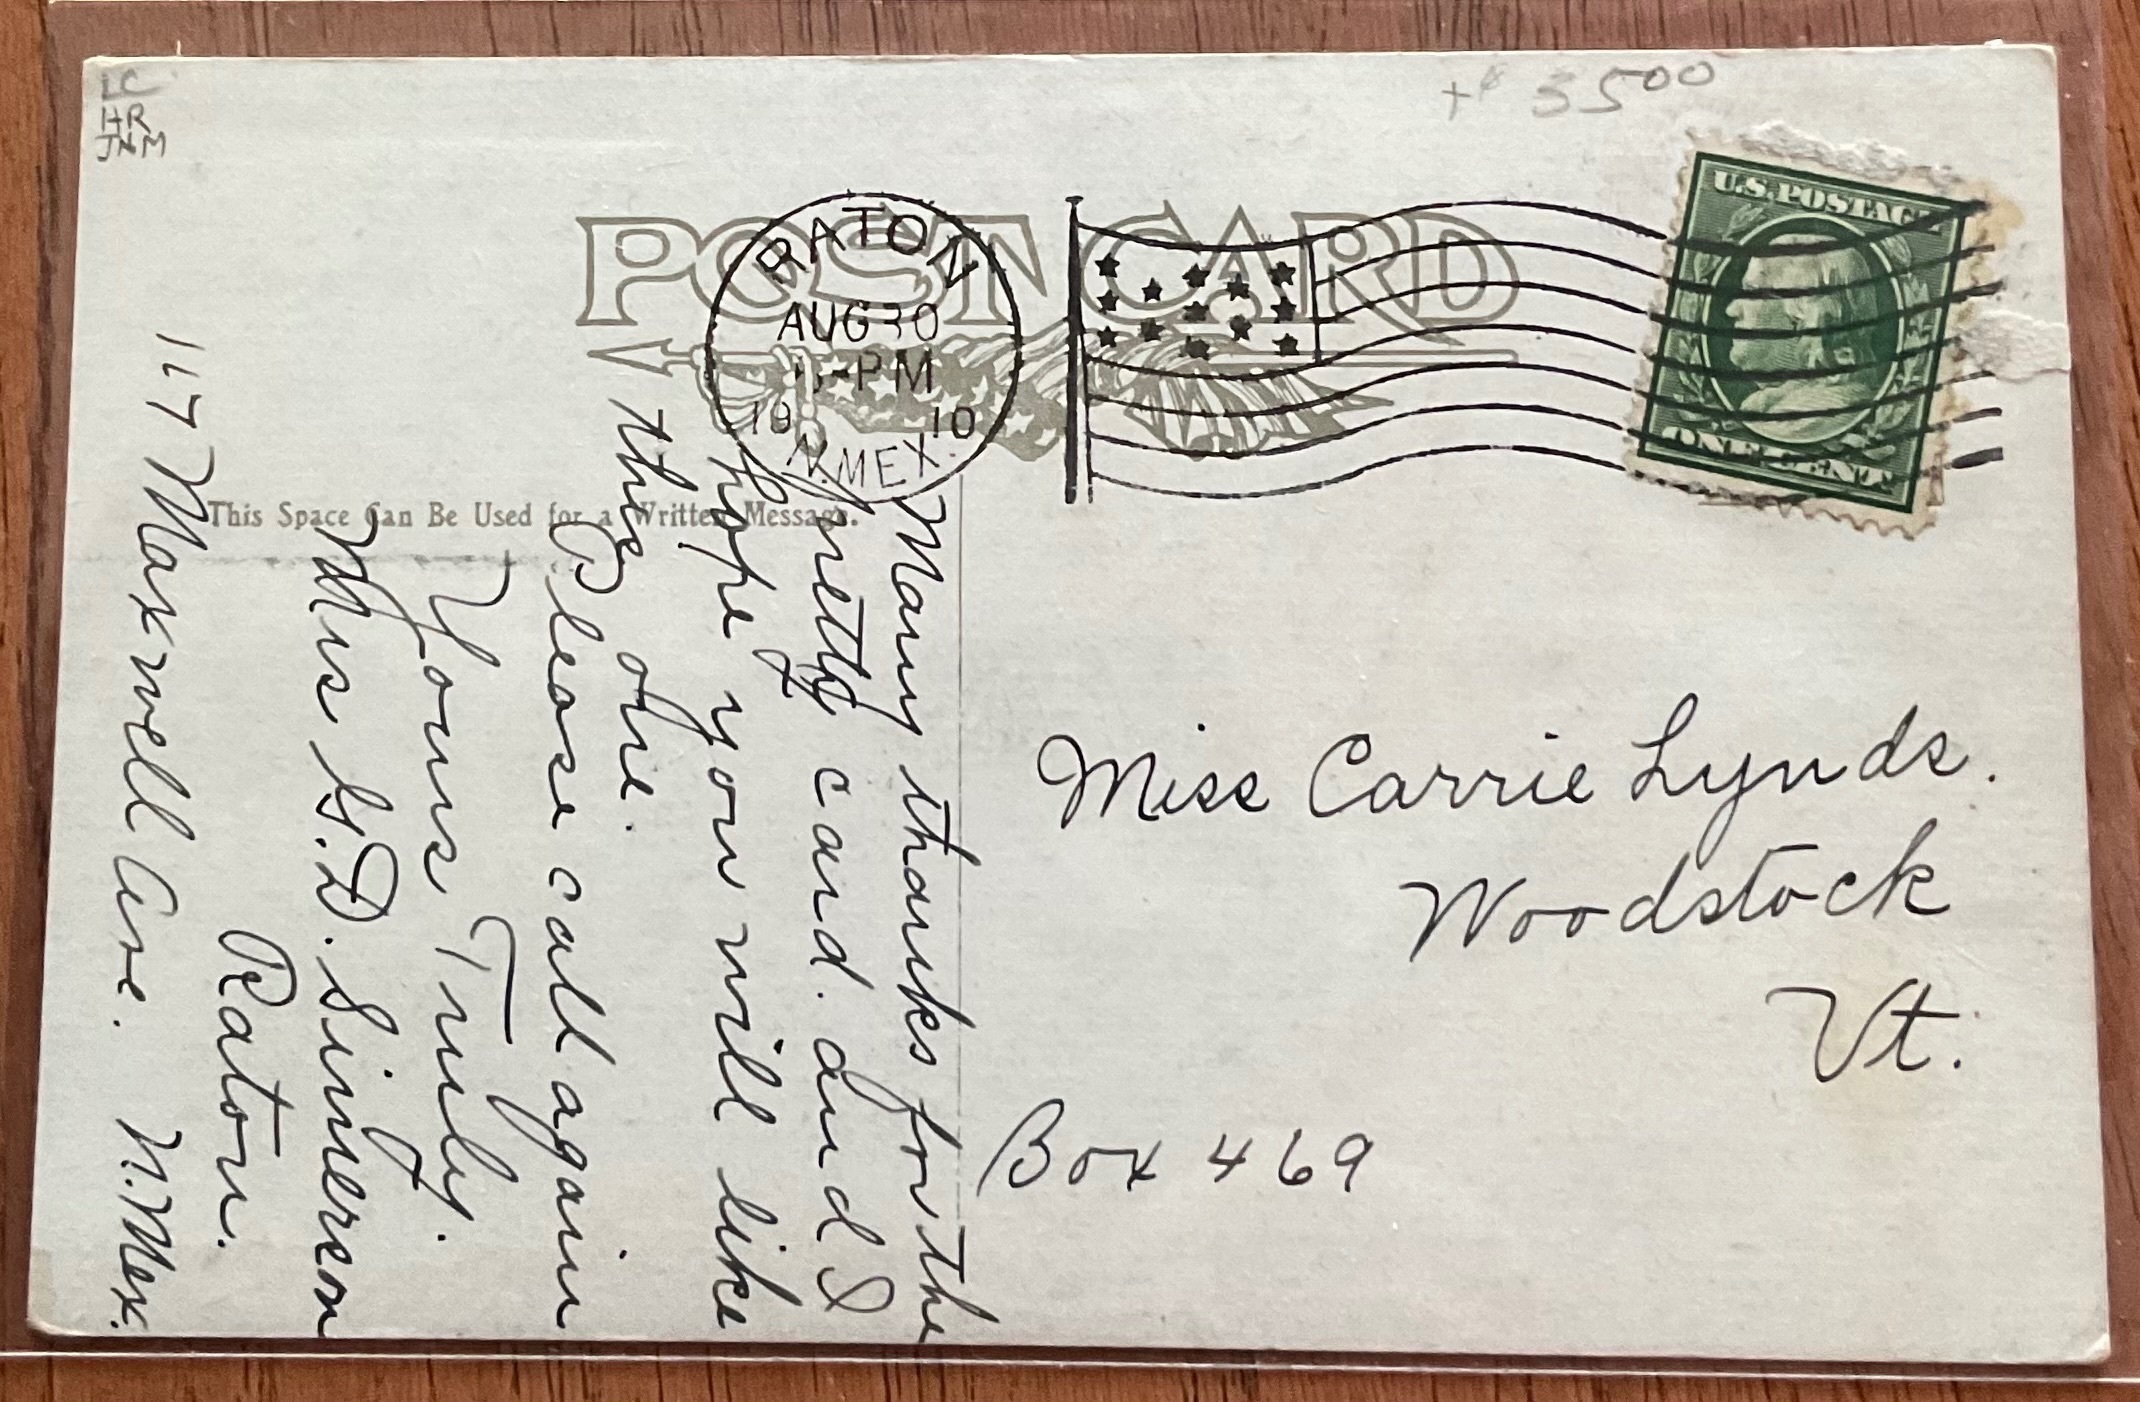 LC
HR
JNM
3500
POST CARD
RATON
AUG 30
-PM
1910
N.MEX.
U.S. POSTAGE
ONE CENT
This Space Can Be Used for a Written Message.
Many thanks for the
pretty card. and I
hope you will like
this one.
Please call again
Yours Truly.
Mrs G.D. Simerson
Raton.
1117 Maxwell Ave. N. Mex.
Miss Carrie Lynds.
Woodstock
Vt.
Box 469